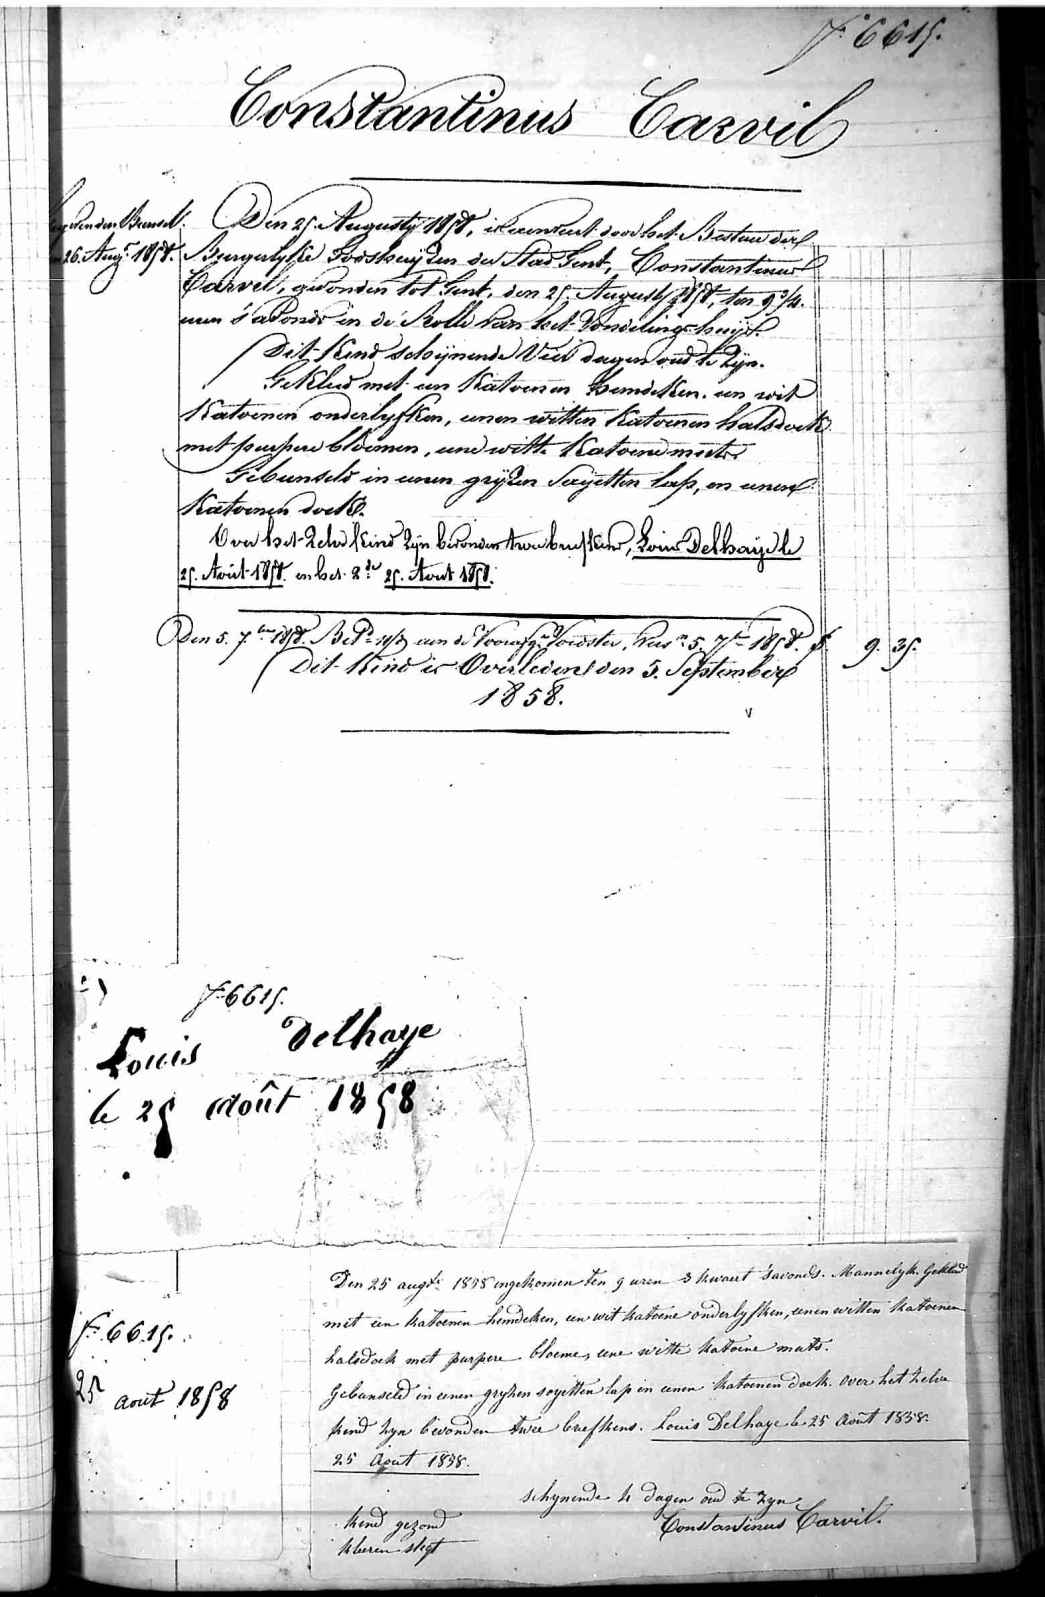 f° 6615.
Constantinus Carvil
Den 25. Augusty 1858, is aenveert door het Bestuer der
26. Aug.t 1858.
Burgerlyke Godshuyzen der Stad Gent, Constantinus
Carvil, gevonden tot Gent, den 25. Augusty 1858, ten 9 3/4.
uren s'avonds in de Rolle van het Vondelings-huys.
Dit Kind schynende Vier dagen oud te zyn.
Gekleed met een Katoenen hemdeken, een wit
Katoenen onderlyfken, eenen witten Katoenen halsdoek
met purpere bloemen, eene witte Katoene muts.
Gebunseld in eenen gryzen Sayetten lap, en eenen
Katoenen doek.
Over het zelve Kind zyn bevonden twee briefkens, Louis Delhaye le
25. Août 1858. en het 2.de 25. Aout 1858.
Den 5. 7.bre 1858. aen de Voedster, 5. 7.bre 1858. f. 9. 35.
Dit Kind is Overleden den 5. September
1858.
f° 6615.
Louis Delhaye
le 25 Août 1858
f° 6615.
25 aout 1858
Den 25 augts. 1858 ingekomen ten 9 uren 3 kwaert 'savonds. Mannelyk. Gekleed
met een katoenen hemdeken, een wit katoene onderlyfken, eenen witten katoenen
halsdoek met purpere bloeme, eene witte katoene muts.
Gebunseld in eenen gryzen soyetten lap in eenen katoenen doek. over het zelve
kind zyn bevonden twee briefkens. Louis Delhaye le 25 Août 1858.
25 Aout 1858.
schynende 4 dagen oud te zyn
kind gezond
Constantinus Carvil.
kleeren slegt